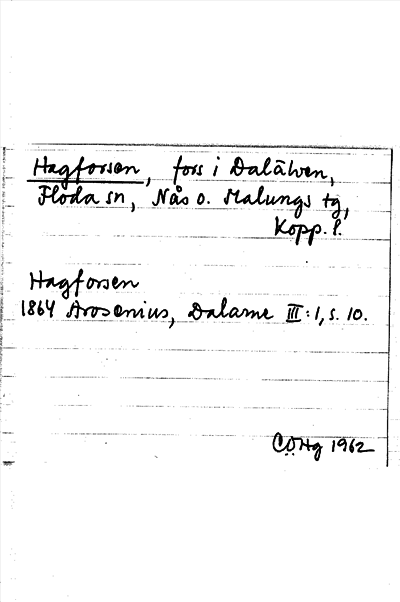 Hagforsen, fors i Dalälven,
Floda sn, Nås o. Malungs tg,
Kopp. l.
Hagforsen
1864 Arosenius, Dalarne III:1, s. 10.
CÖHg 1962